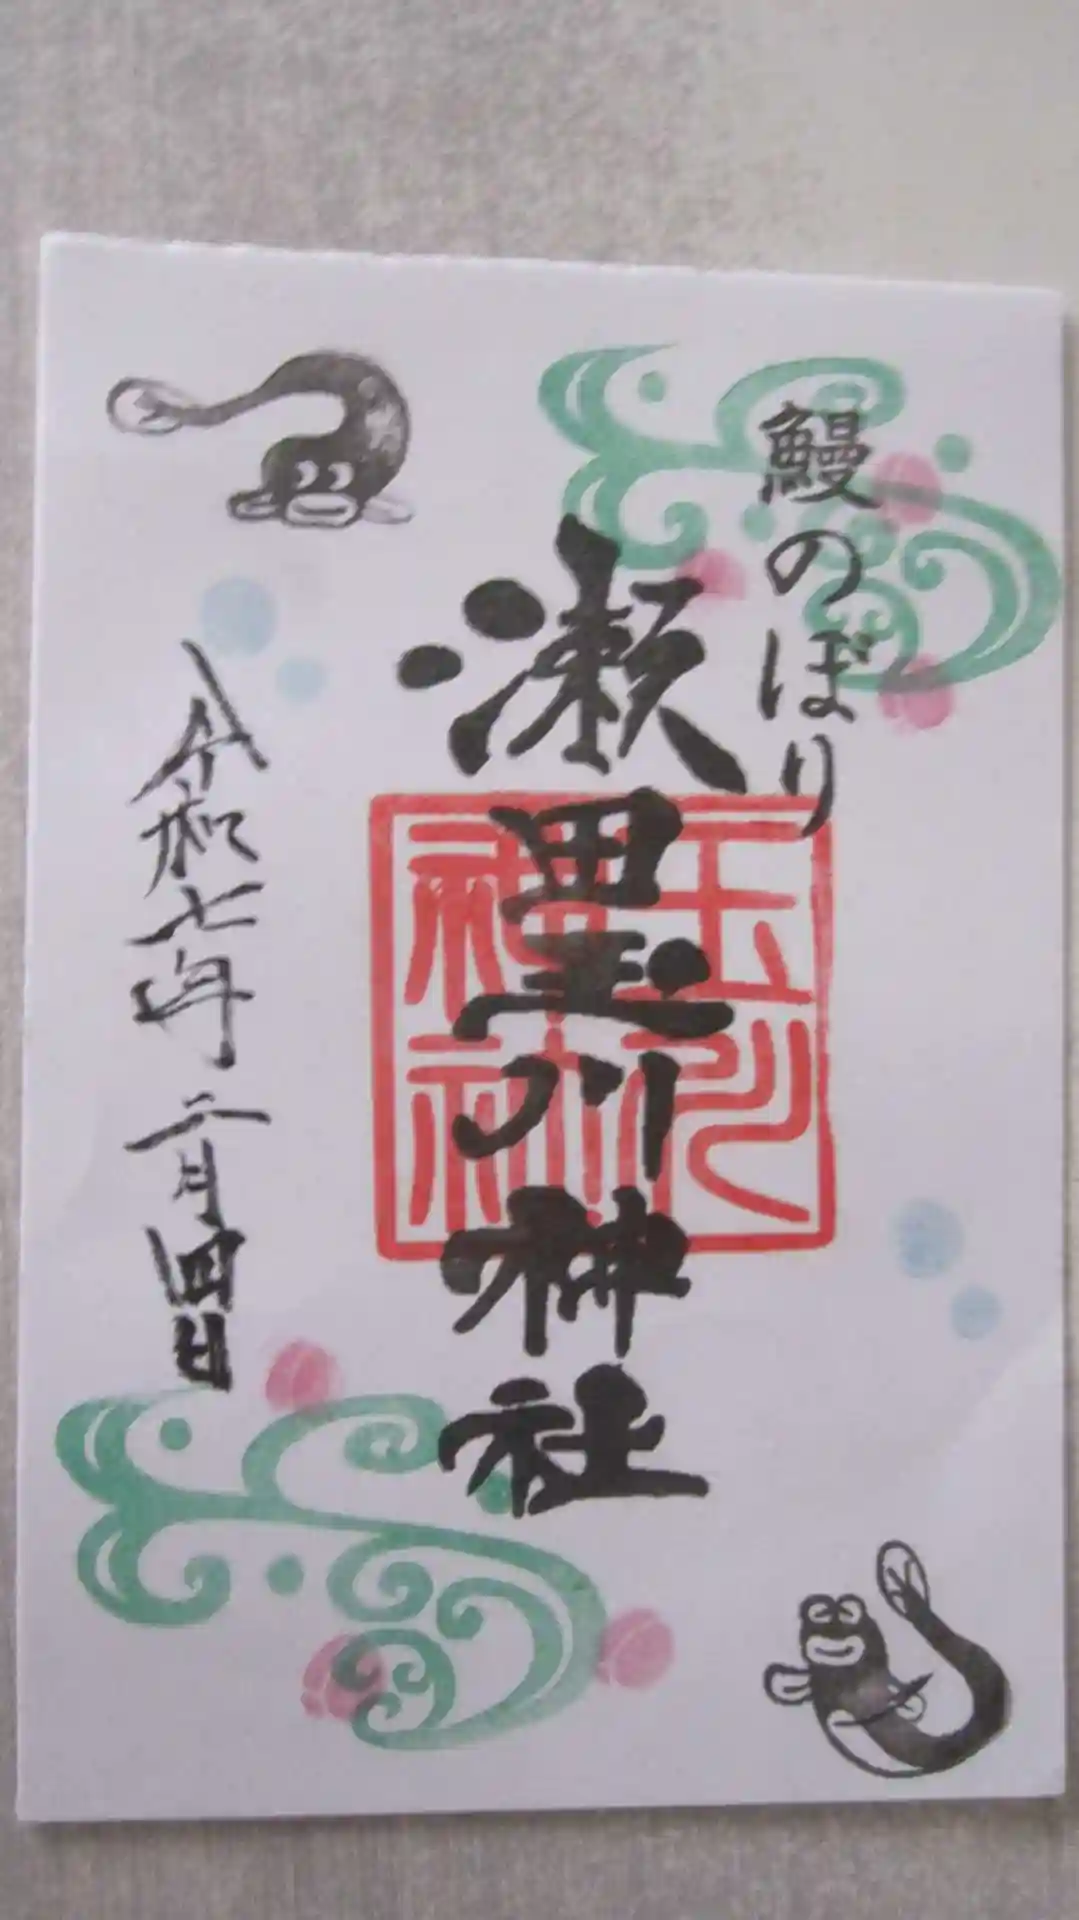 鰻のぼり
瀬田玉川神社
玉川
神社
令和七年二月四日